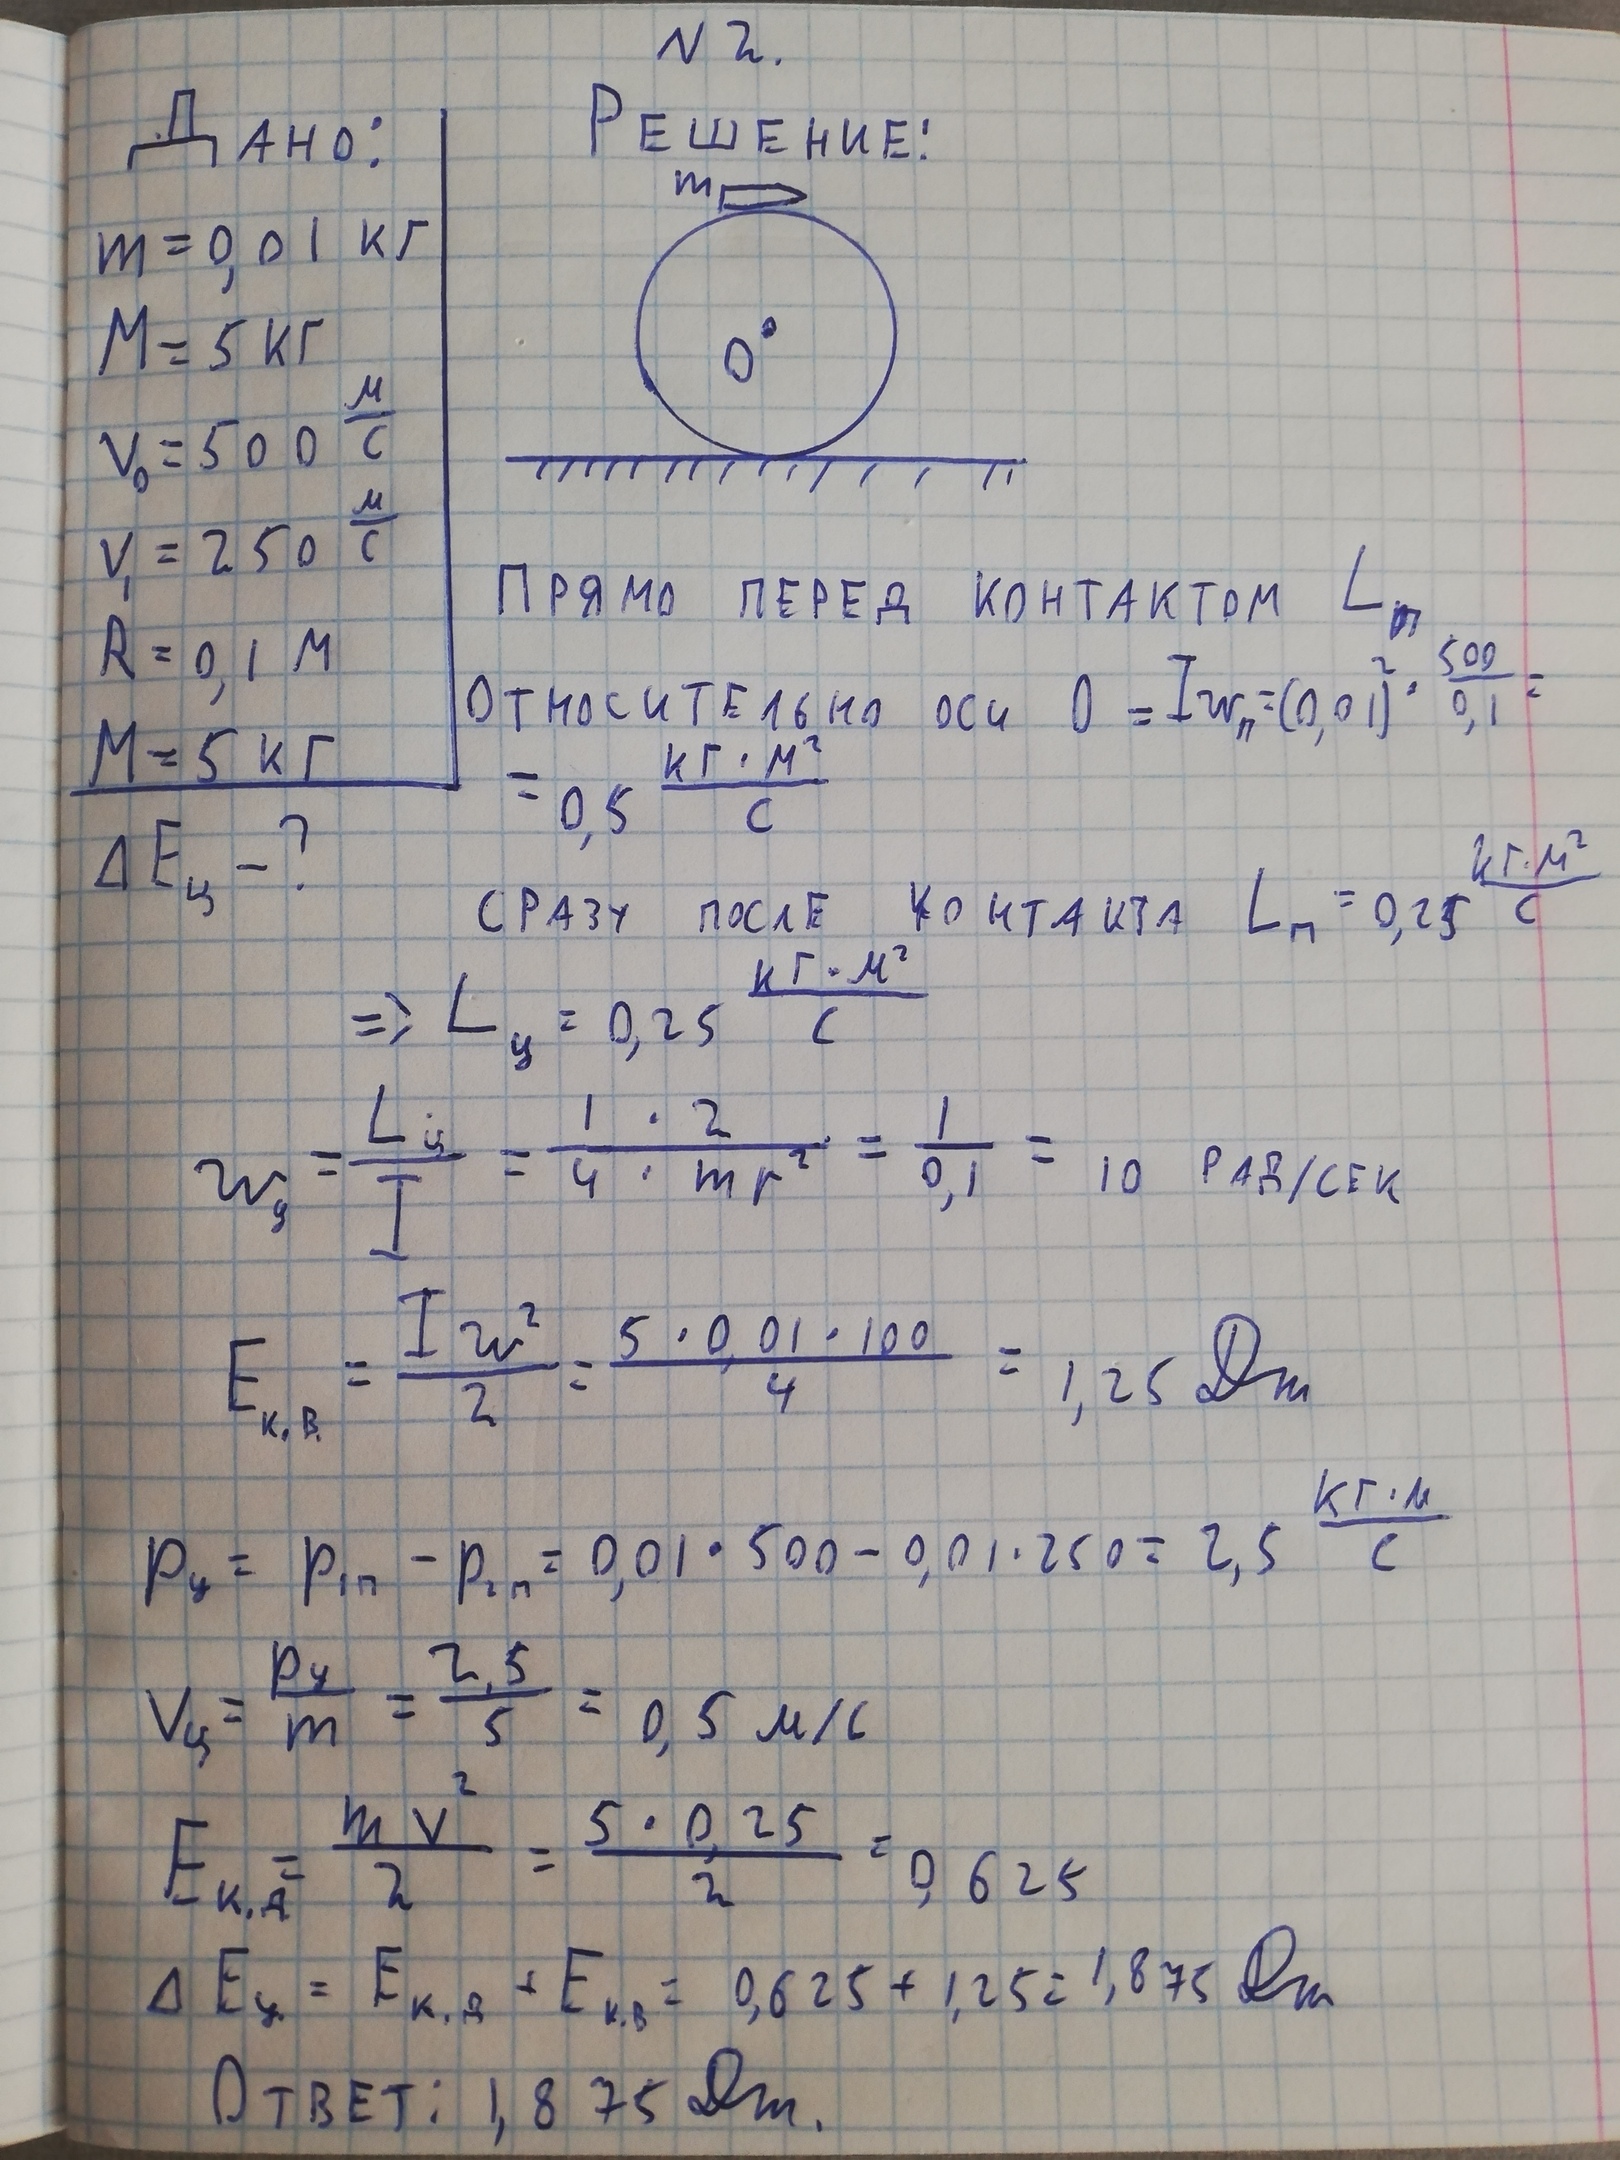 N 2.
Дано:
m = 0,01 кг
M = 5 кг
V₀ = 500 м/с
V₁ = 250 м/с
R = 0,1 м
M = 5 кг
ΔEц – ?
Решение:
m
O
Прямо перед контактом Lп
относительно оси O = Iwп = (0,01)² · 500/0,1 =
= 0,5 кг·м²/с
сразу после контакта Lп = 0,25 кг·м²/с
=> Lц = 0,25 кг·м²/с
wц = Lц/I = 1·2/4·mr² = 1/0,1 = 10 рад/сек
Eк.в. = Iw²/2 = 5·0,01·100/4 = 1,25 Дж
pц = p₁п – p₂п = 0,01·500 – 0,01·250 = 2,5 кг·м/с
Vц = pц/m = 2,5/5 = 0,5 м/с
Eк.д = mv²/2 = 5·0,25/2 = 0,625
ΔEц = Eк.д + Eк.в = 0,625 + 1,25 = 1,875 Дж
Ответ: 1,875 Дж.